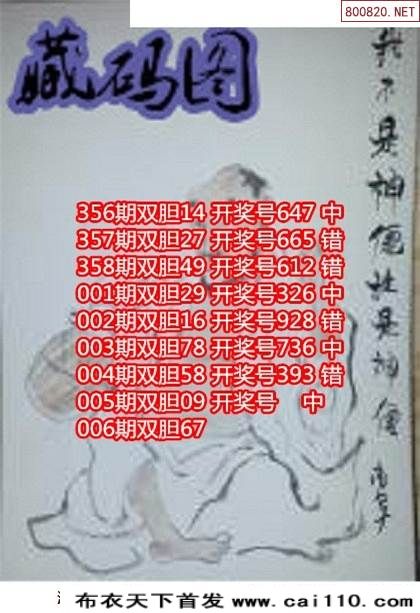 800820.NET
臓码图
356期双胆14 开奖号647 中
357期双胆27 开奖号665 错
358期双胆49 开奖号612 错
001期双胆29 开奖号326 中
002期双胆16 开奖号928 错
003期双胆78 开奖号736 中
004期双胆58 开奖号393 错
005期双胆09 开奖号　 中
006期双胆67
我不是神僊
是神僊
布衣天下首发 www.cai110.com